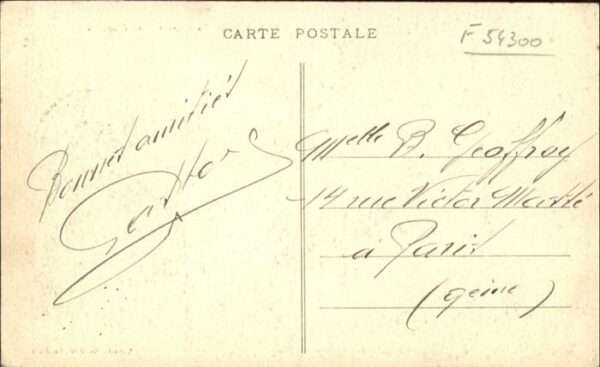 CARTE POSTALE
F 54300
Bonnes amitiés
Gaston
Melle B. Geoffroy
14 rue Victor Massé
à Paris
(9eme)